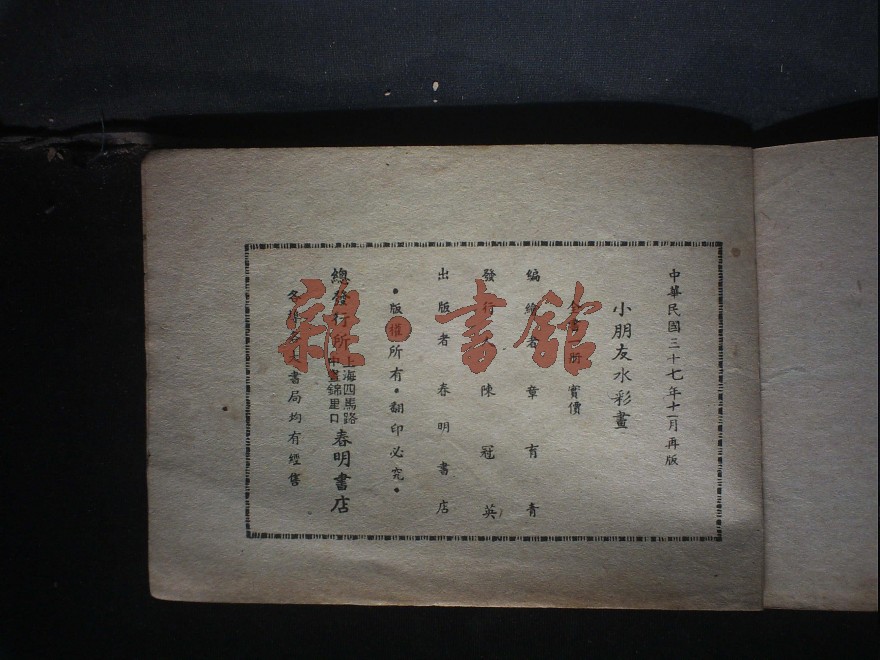 中華民國三十七年十一月再版
小朋友水彩畫
全書一册 實價
編繪者 章育青
發行人 陳冠英
出版者 春明書店
•版權所有•翻印必究•
總發行所 上海四馬路中晝錦里口 春明書店
各大書局均有經售
雜·書館